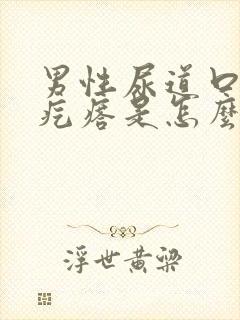 男性尿道口
疙瘩是怎麼
浮世黄梁